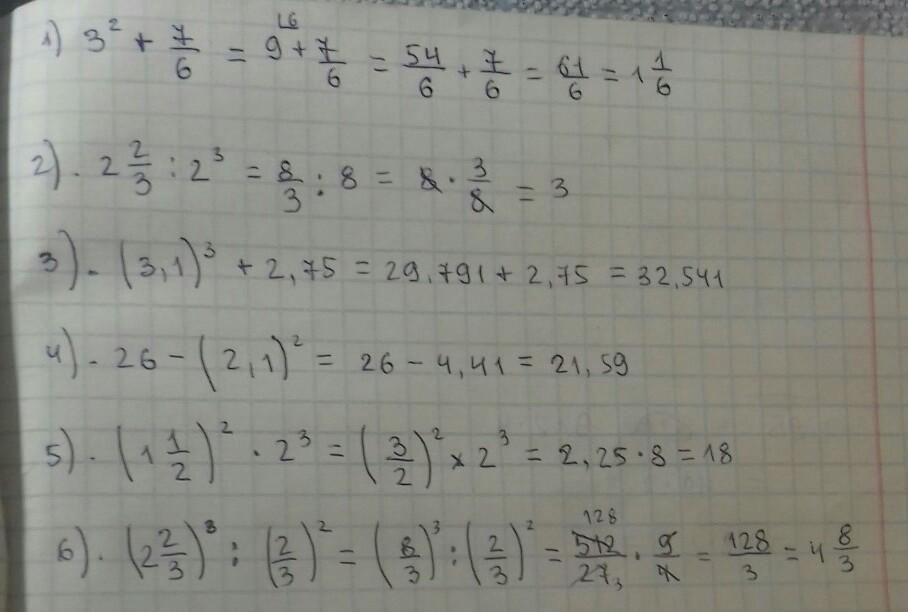 1) 3² + 7/6 = 9 + 7/6 = 54/6 + 7/6 = 61/6 = 1 1/6
2). 2 2/3 : 2³ = 8/3 : 8 = 8 · 3/8 = 3
3) - (3,1)³ + 2,75 = 29,791 + 2,75 = 32,541
4) - 26 - (2,1)² = 26 - 4,41 = 21,59
5). (1 1/2)² · 2³ = (3/2)² × 2³ = 2,25 · 8 = 18
6). (2 2/3)³ : (2/3)² = (8/3)³ : (2/3)² = 128 512/27 3 · 9/4 = 128/3 = 4 8/3